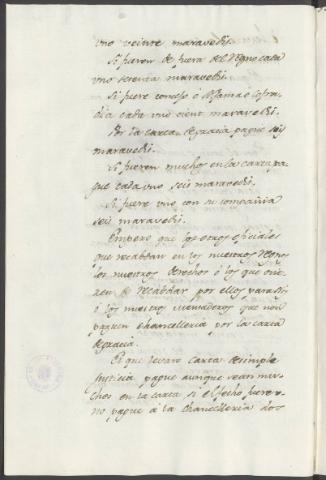 uno veinte maravedis.
Si fueren de fuera del Regno cada
uno setenta maravedis.
Si fuere concejo ó Aljama o Cofra-
dia cada uno cient maravedis.
Por la carta de gracia pague seis
maravedis.
Si fueren muchos en la carta pa-
gue cada uno seis maravedis.
Si fuere uno con su compañia
seis maravedis.
Empero que los otros oficiales
que recabdan en los nuestros Regnos
los nuestros derechos ó los que ovie-
ren de Recabdar por ellos para Nos
ó los nuestros que non
paguen chancelleria por la carta
de gracia.
El que levare carta de simple
Justicia pague aunque sean mu-
chos en la carta si el fecho fuere u-
no pague á la Chancelleria dos